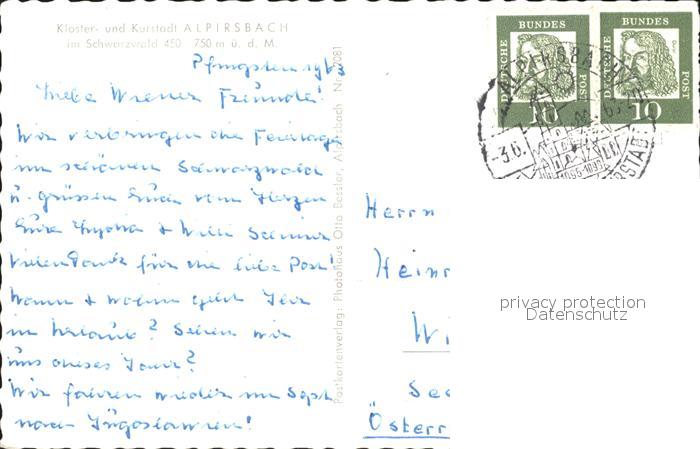 Kloster- und Kurstadt ALPIRSBACH
im Schwarzwald 450 - 750 m ü. d. M.
Pfingsten 1963
Liebe Wiener Freunde!
Wir verbringen die Feiertage
im schönen Schwarzwald
u. grüssen Euch vom Herzen
Eure & Willi
Vielen Dank für die liebe Post!
Wann & wohin geht Ihr
in Urlaub? Sehen wir
uns dieses Jahr?
Wir fahren wieder im Sept.
nach Jugoslawien!
Postkartenverlag: Photohaus Otto Bessler, Alpirsbach
DEUTSCHE BUNDESPOST
10
DEUTSCHE BUNDESPOST
10
ALPIRSBACH
-3.6.
1095-1095
Herrn
Heinr
Wi
Österr
privacy protection
Datenschutz